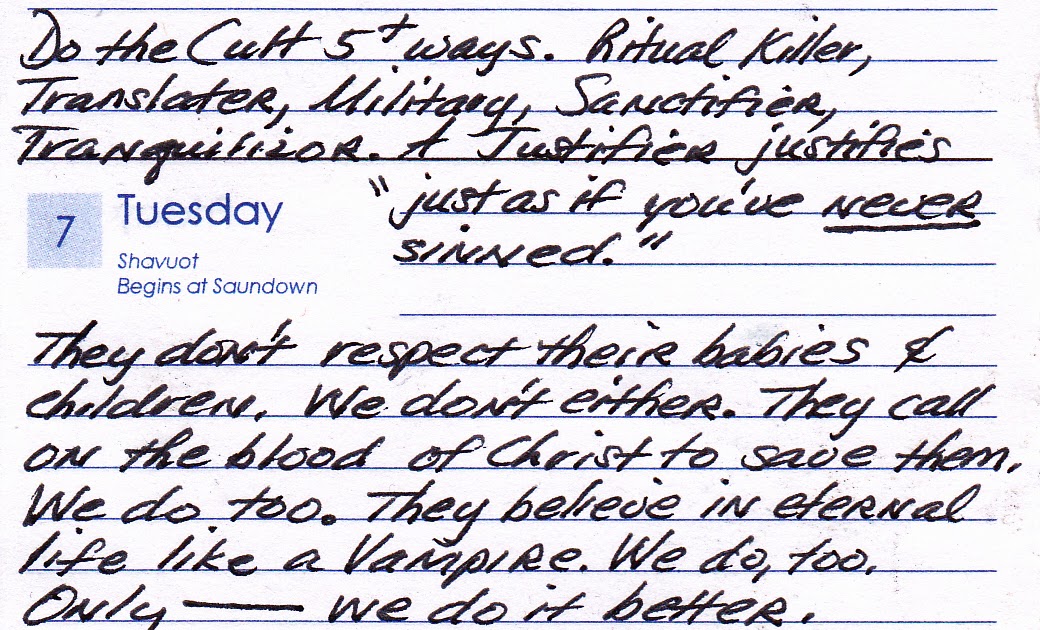 Do the Cult 5+ ways. Ritual Killer,
Translater, Military, Sanctifier,
Tranquilizor. A Justifier justifies
"just as if you've never
sinned."
7 Tuesday
Shavuot
Begins at Saundown
They don't respect their babies &
children. We don't either. They call
on the blood of Christ to save them.
We do too. They believe in eternal
life like a Vampire. We do, too.
Only — we do it better.